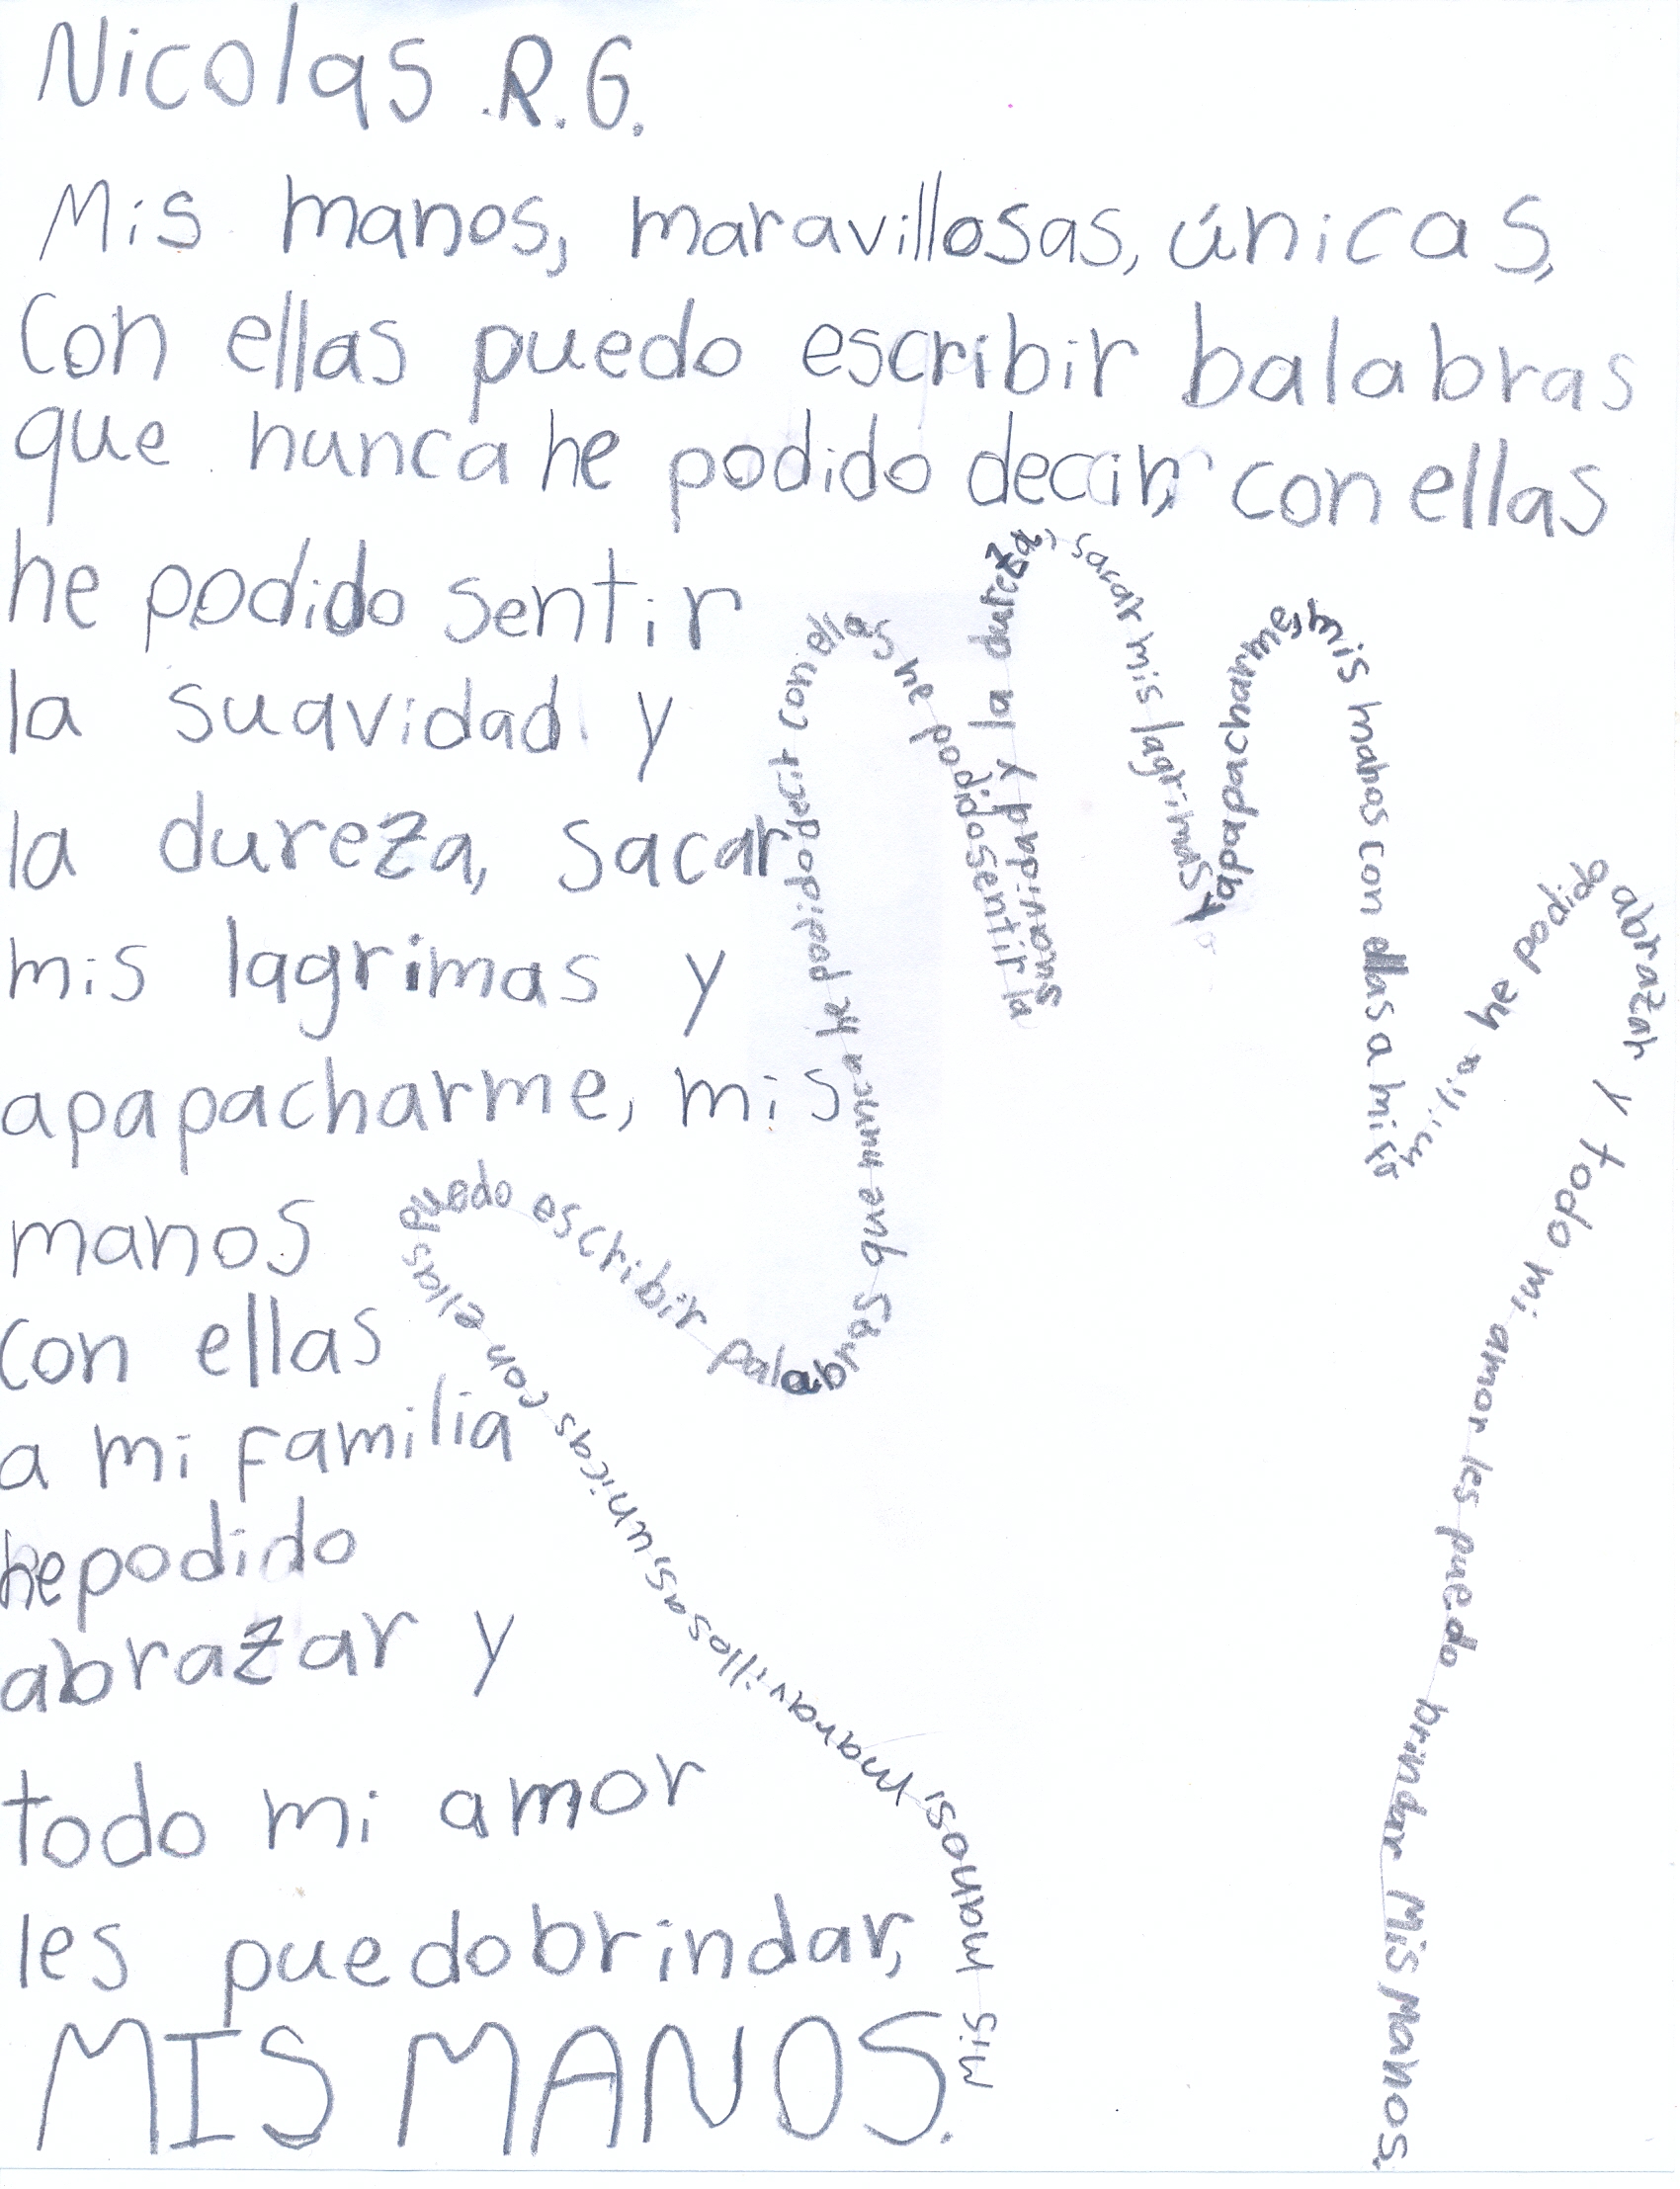 Nicolas R.G.
Mis manos, maravillosas, únicas,
Con ellas puedo escribir balabras
que nunca he podido decir, con ellas
he podido sentir
la suavidad y
la dureza, sacar
mis lagrimas y
apapacharme, mis
manos
con ellas
a mi familia
he podido
abrazar y
todo mi amor
les puedo brindar,
MIS MANOS.
Mis Manos, Maravillosas, unicas con ellas puedo escribir palabras que nunca he podido decir con ellas he podido sentir la suavidad y la dureza, sacar mis lagrimas y apapacharme, mis manos con ellas a mi familia he podido abrazar y todo mi amor les puedo brindar Mis Manos.